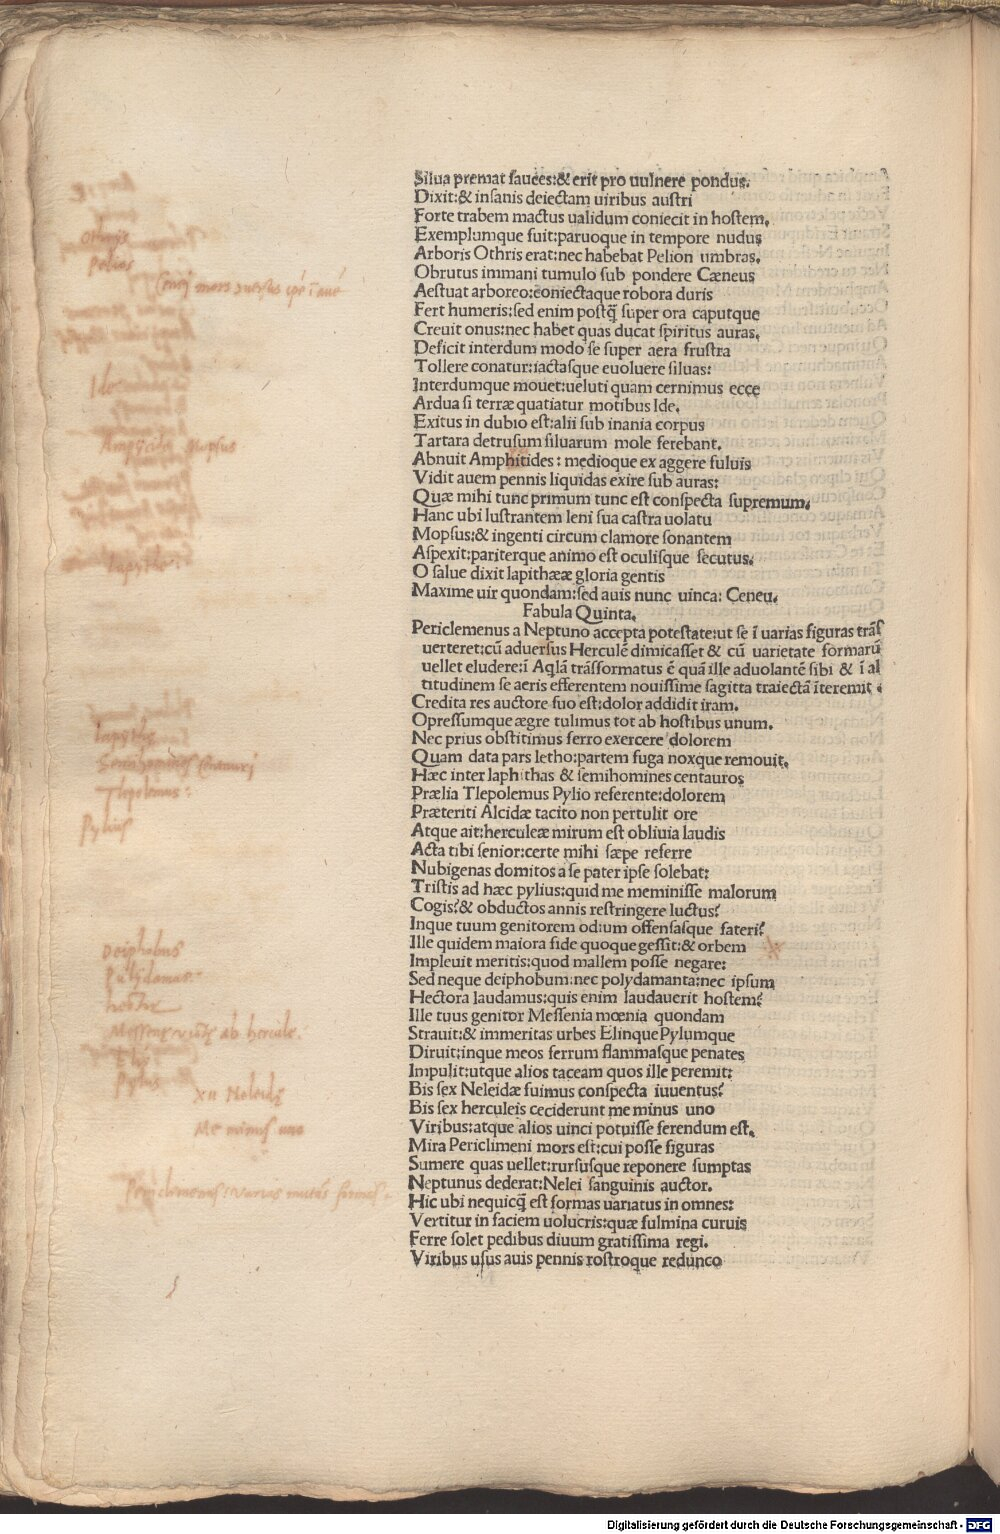 Silua premat fauces:& erit pro uulnere pondus.
Dixit:& insanis deiectam uiribus austri
Forte trabem mactus ualidum coniecit in hostem.
Exemplumque fuit:paruoque in tempore nudus
Arboris Othris erat:nec habebat Pelion umbras.
Obrutus immani tumulo sub pondere Cæneus
Aestuat arboreo:coniectaque robora duris
Fert humeris:sed enim postq̃ super ora caputque
Creuit onus:nec habet quas ducat spiritus auras.
Deficit interdum modo se super aera frustra
Tollere conatur:iactasque euoluere siluas:
Interdumque mouet:ueluti quam cernimus ecce
Ardua si terræ quatiatur motibus Ide.
Exitus in dubio est:alii sub inania corpus
Tartara detrusum siluarum mole ferebant.
Abnuit Amphitides : medioque ex aggere fuluis
Vidit auem pennis liquidas exire sub auras:
Quæ mihi tunc primum tunc est conspecta supremum.
Hanc ubi lustrantem leni sua castra uolatu
Mopsus:& ingenti circum clamore sonantem
Aspexit:pariterque animo est oculisque secutus.
O salue dixit lapithææ gloria gentis
Maxime uir quondam:sed auis nunc unica: Ceneu.
Fabula Quinta.
Periclemenus a Neptuno accepta potestate:ut se ī uarias figuras trãs
uerteret:cũ aduersus Herculẽ dimicasset & cũ uarietate formarũ
uellet eludere:ĩ Aqlã trãsformatus ẽ quã ille aduolantẽ sibi & ĩ al
titudinem se aeris efferentem nouissime sagitta traiectã ĩteremit .
Credita res auctore suo est:dolor addidit iram.
Opressumque ægre tulimus tot ab hostibus unum.
Nec prius obstitimus ferro exercere dolorem
Quam data pars letho:partem fuga noxque remouit.
Hæc inter laphithas & semihomines centauros
Prælia Tlepolemus Pylio referente:dolorem
Præteriti Alcidæ tacito non pertulit ore
Atque ait:herculeæ mirum est obliuia laudis
Acta tibi senior:certe mihi sæpe referre
Nubigenas domitos a se pater ipse solebat:
Tristis ad hæc pylius:quid me meminisse malorum
Cogis?& obductos annis restringere luctus?
Inque tuum genitorem odium offensasque fateri?
Ille quidem maiora fide quoque gessit:& orbem
Impleuit meritis:quod mallem posse negare:
Sed neque deiphobum:nec polydamanta:nec ipsum
Hectora laudamus:quis enim laudauerit hostem?
Ille tuus genitor Messenia mœnia quondam
Strauit:& immeritas urbes Elinque Pylumque
Diruit:inque meos ferrum flammasque penates
Impulit:utque alios taceam quos ille peremit:
Bis sex Neleidæ fuimus conspecta iuuentus?
Bis sex herculeis ceciderunt me minus uno
Viribus:atque alios uinci potuisse ferendum est.
Mira Periclimeni mors est:cui posse figuras
Sumere quas uellet:rursusque reponere sumptas
Neptunus dederat:Nelei sanguinis auctor.
Hic ubi nequicq̃ est formas uariatus in omnes:
Vertitur in faciem uolucris:quæ fulmina curuis
Ferre solet pedibus diuum gratissima regi.
Viribus usus auis pennis rostroque redunco
othrys
pelios
Lapythe
Tlepolemus:
Pylius
Deiphobus
Polydamas.
hector
ab hercule.
Pylus
XII Neleidę
Me minus uno
Digitalisierung gefördert durch die Deutsche Forschungsgemeinschaft - DFG